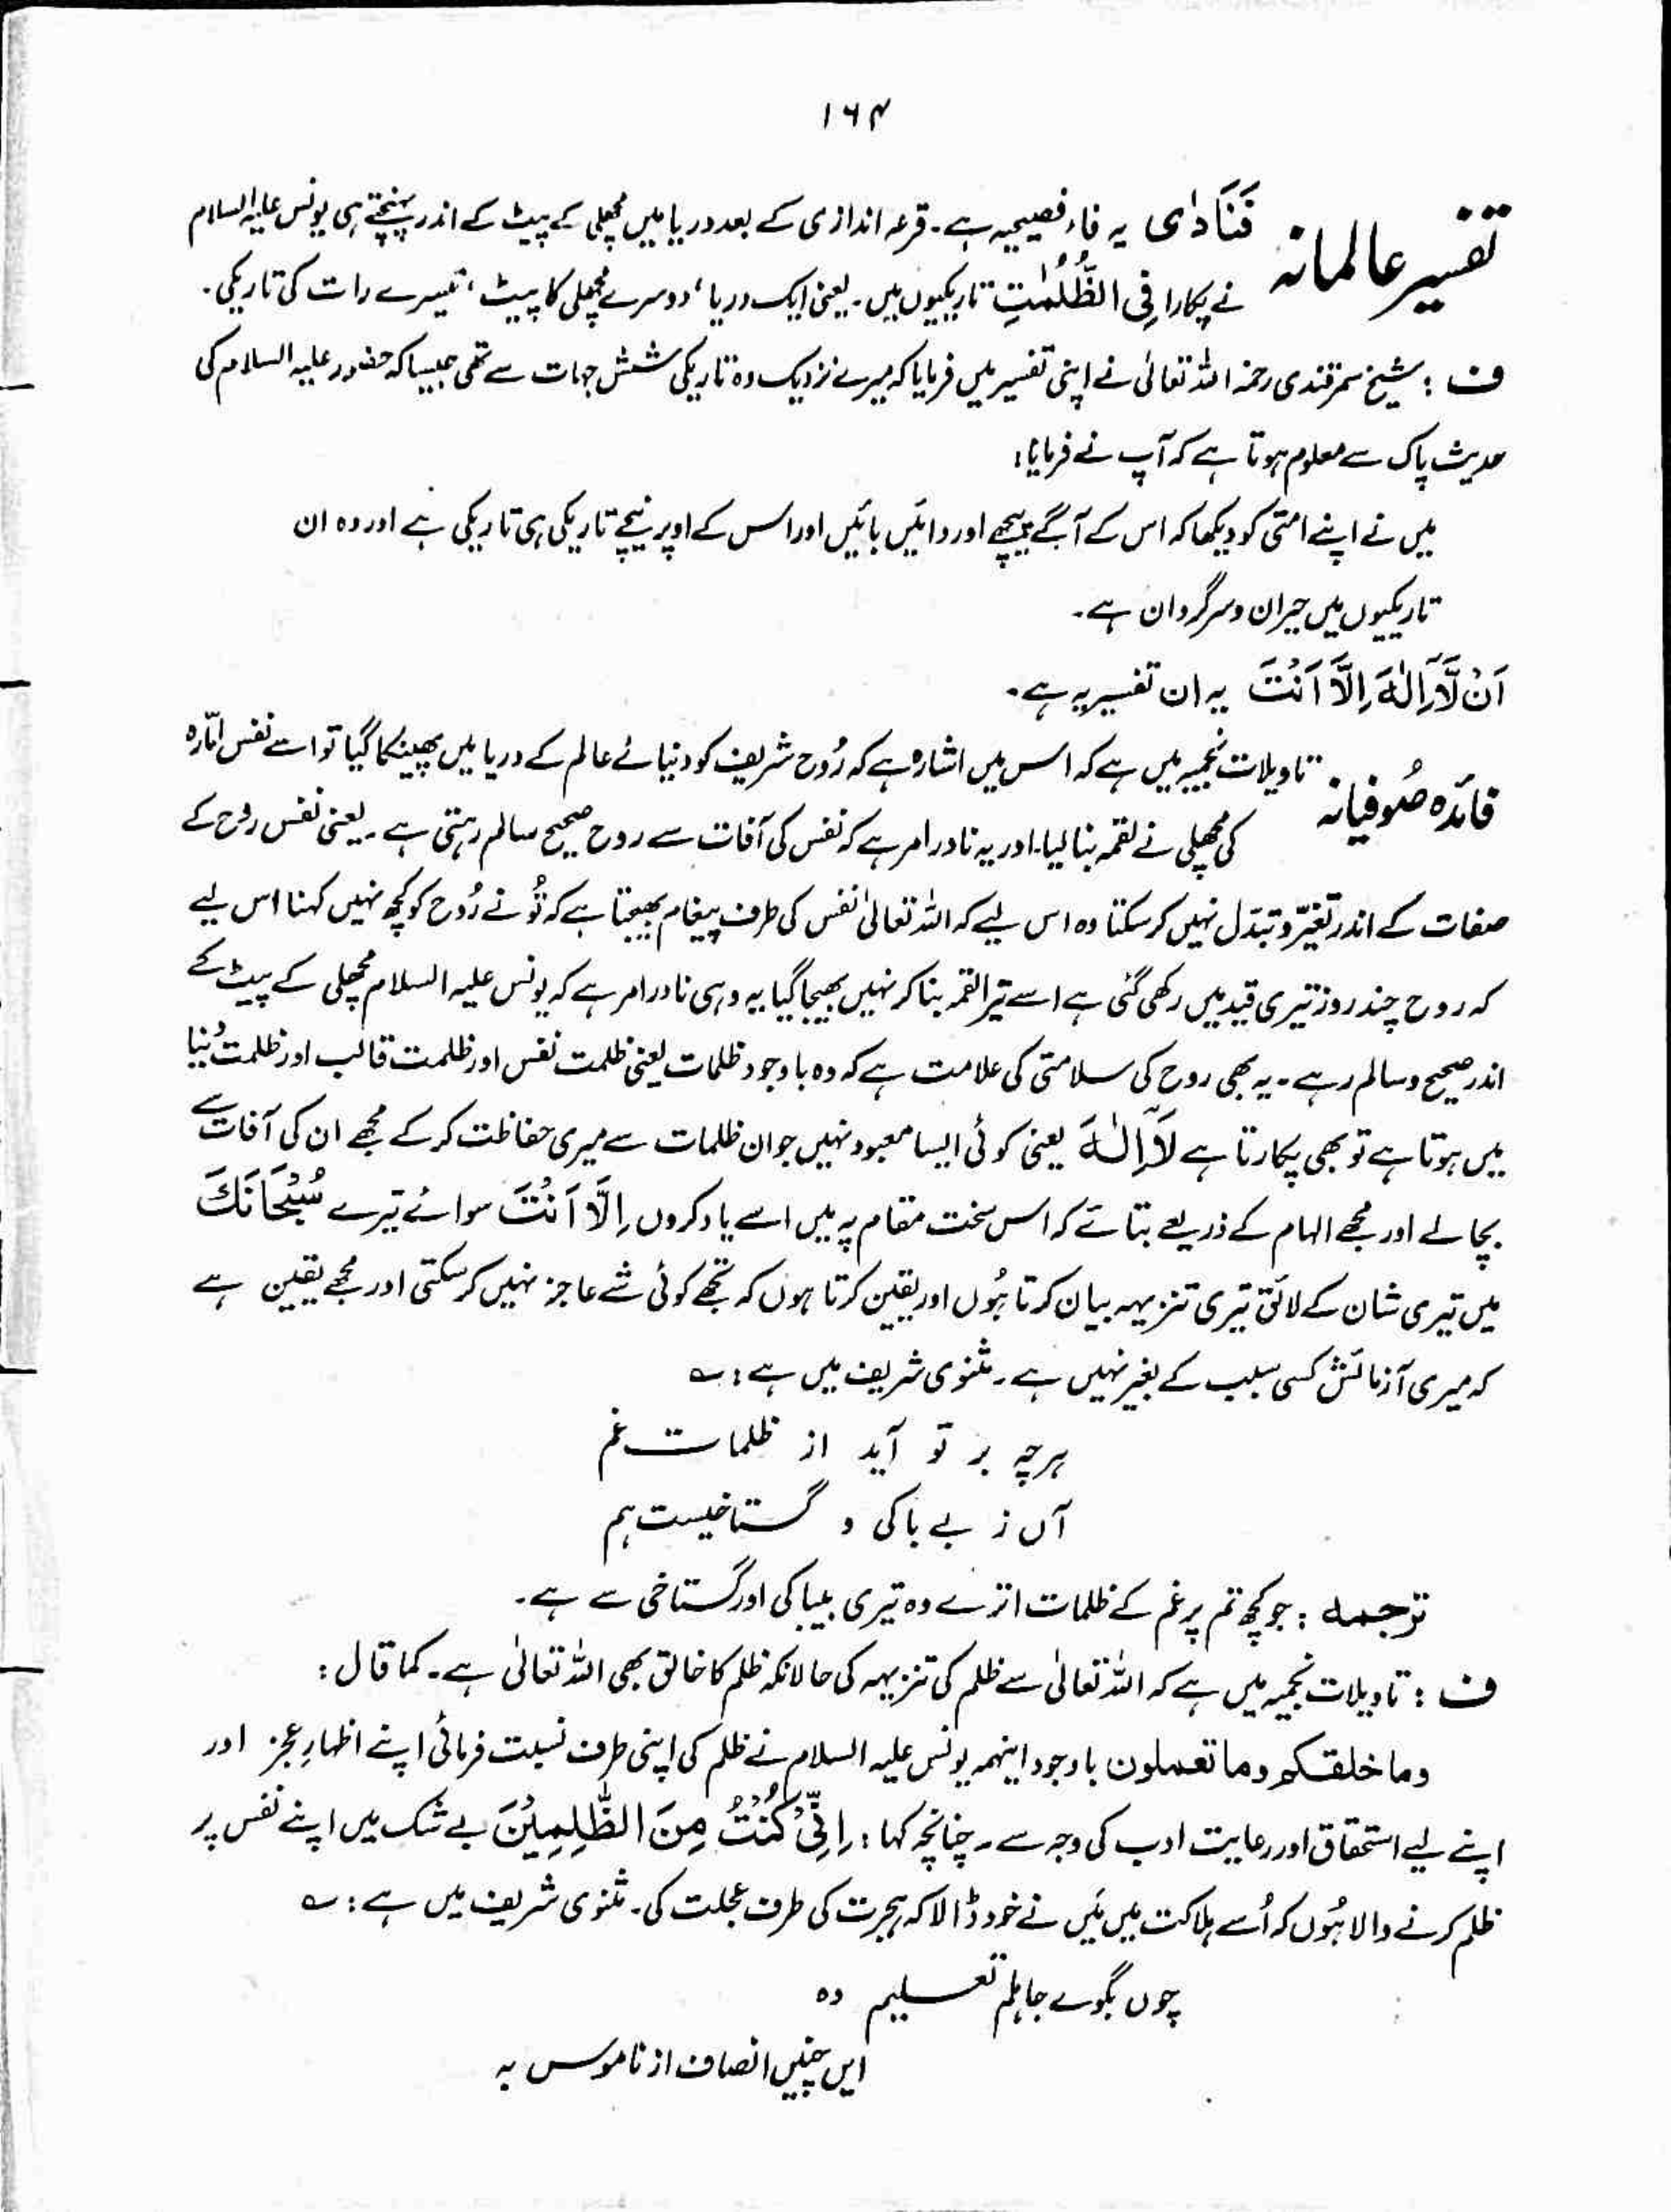 ۱۶۴
تفسیر عالمانہ فَنَادٰی یہ فاء فصیحیہ ہے۔ قرعہ اندازی کے بعد دریا میں مچھلی کے پیٹ کے اندر پہنچتے ہی یونس علیہ السلام
نے پکارا فِی الظُّلُمٰتِ تاریکیوں میں۔ یعنی ایک دریا، دوسرے مچھلی کا پیٹ، تیسرے رات کی تاریکی۔
ف : شیخ سمرقندی رحمۃ اللہ تعالیٰ نے اپنی تفسیر میں فرمایا کہ میرے نزدیک وہ تاریکی شش جہات سے تھی جیسا کہ حضور علیہ السلام کی
حدیث پاک سے معلوم ہوتا ہے کہ آپ نے فرمایا:
میں نے اپنے امتی کو دیکھا کہ اس کے آگے پیچھے اور دائیں بائیں اور اس کے اوپر نیچے تاریکی ہی تاریکی ہے اور وہ ان
تاریکیوں میں حیران و سرگردان ہے۔
اَنْ لَّآ اِلٰہَ اِلَّآ اَنْتَ یہ ان تفسیریہ ہے۔
فائدہ صُوفیانہ تاویلات نجمیہ میں ہے کہ اس میں اشارہ ہے کہ رُوح شریف کو دنیائے عالم کے دریا میں پھینکا گیا تو اسے نفس امّارہ
کی مچھلی نے لقمہ بنالیا۔ اور یہ نادر امر ہے کہ نفس کی آفات سے روح صحیح سالم رہتی ہے۔ یعنی نفس روح کے
صفات کے اندر تغیّر و تبدّل نہیں کرسکتا وہ اس لیے کہ اللہ تعالیٰ نفس کی طرف پیغام بھیجتا ہے کہ تُو نے رُوح کو کچھ نہیں کہنا اس لیے
کہ روح چند روز تیری قید میں رکھی گئی ہے اسے تیرا لقمہ بنا کر نہیں بھیجا گیا یہ وہی نادر امر ہے کہ یونس علیہ السلام مچھلی کے پیٹ کے
اندر صحیح و سالم رہے۔ یہ بھی روح کی سلامتی کی علامت ہے کہ وہ باوجود ظلمات یعنی ظلمت نفس اور ظلمت قالب اور ظلمت دُنیا
میں ہوتا ہے تو بھی پکارتا ہے لَآ اِلٰہَ یعنی کوئی ایسا معبود نہیں جو ان ظلمات سے میری حفاظت کرکے مجھے ان کی آفات سے
بچالے اور مجھے الہام کے ذریعے بتائے کہ اس سخت مقام پہ میں اسے یاد کروں اِلَّا اَنْتَ سوائے تیرے سُبْحَانَكَ
میں تیری شان کے لائق تیری تنزیہہ بیان کرتا ہُوں اور یقین کرتا ہوں کہ تجھے کوئی شے عاجز نہیں کرسکتی اور مجھے یقین ہے
کہ میری آزمائش کسی سبب کے بغیر نہیں ہے۔ مثنوی شریف میں ہے: ؎
ہرچہ بر تو آید از ظلمات غم
آں ز بے باکی و گستاخیست ہم
ترجمہ : جو کچھ تم پر غم کے ظلمات اترے وہ تیری بیباکی اور گستاخی سے ہے۔
ف : تاویلات نجمیہ میں ہے کہ اللہ تعالیٰ سے ظلم کی تنزیہہ کی حالانکہ ظلم کا خالق بھی اللہ تعالیٰ ہے۔ کما قال:
وما خلقکم وما تعملون باوجود اینہمہ یونس علیہ السلام نے ظلم کی اپنی طرف نسبت فرمائی اپنے اظہارِ عجز اور
اپنے لیے استحقاق اور رعایت ادب کی وجہ سے۔ چنانچہ کہا: اِنِّیْ کُنْتُ مِنَ الظّٰلِمِیْنَ بے شک میں اپنے نفس پر
ظلم کرنے والا ہُوں کہ اُسے ہلاکت میں مَیں نے خود ڈالا کہ ہجرت کی طرف عجلت کی۔ مثنوی شریف میں ہے: ؎
چوں بگوے جاہلم تعلیم دہ
ایں چنیں انصاف از ناموس بہ